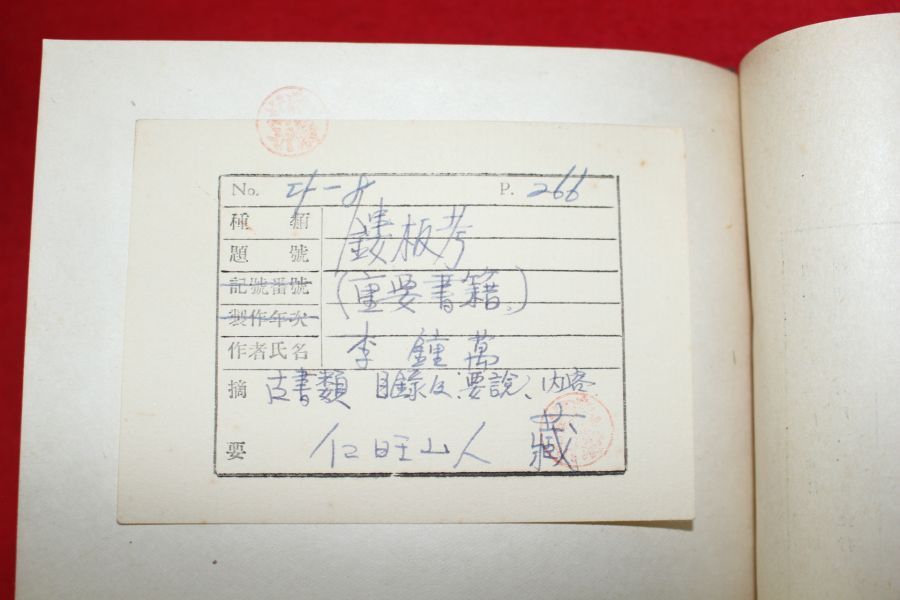 No. P. 266
種類 鏤板考
題號
記號番號 (重要書籍。)
製作年次
作者氏名 李鍾萬
摘 書類 目錄及 要說、內容
要 仁旺山人 藏